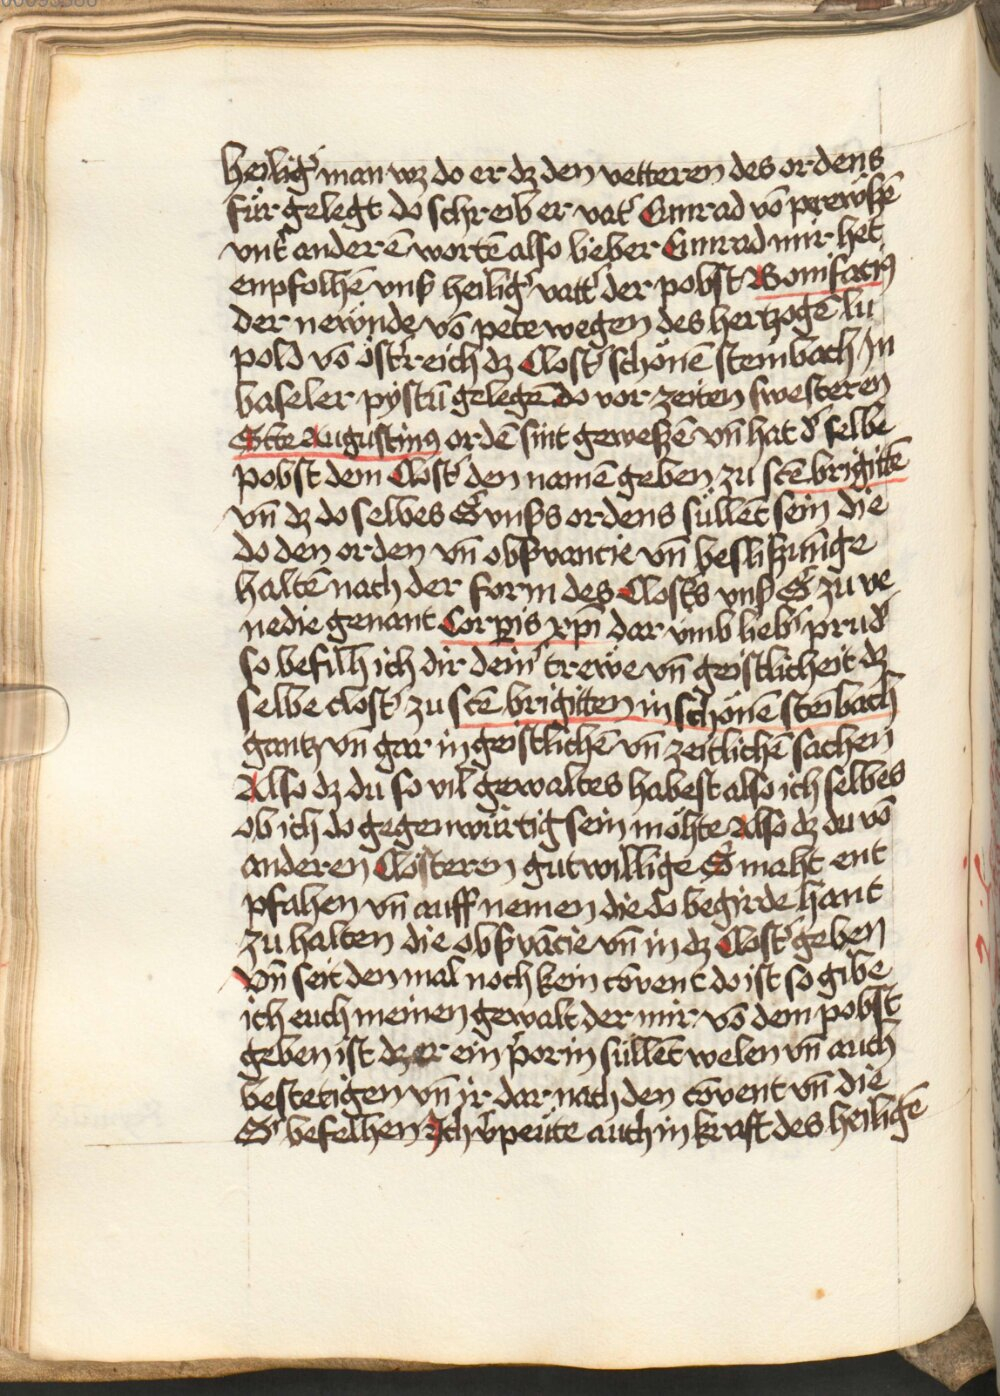 heilig' man wz do er dz den vetteren des ordens
für gelegt do schreib er vat' Cunrad võ prewßẽ
vnt' anderẽ wortẽ also lieber Cunrad mir het
enpfolhẽ vnß heilig' vatt' der pobst Bonifaciꝰ
der newnde võ pete wegen des hertzogẽ lu
pold võ öst'reich dz Clost' schönẽ steinbach In
baseler pystũ gelegẽ do vor zeiten swesteren
Sctẽ Augustinꝰ ordẽ sint geweßẽ vñ hat d' selbe
pobst dem Clost' den namẽ geben zu sctẽ brigittẽ
vñ dz do selbes S' vnßs ordens süllẽt sein die
do den orden vñ obßvancie vñ beslißũnge
haltẽ nach der form des Clost's vnß S' zu ve
nedie genant Corpis xpi dar vmb lieb' prud'
so befilh ich dir dein' trewe vñ geistlicheit dz
selbe clost' zu sctẽ brigitten in schönẽ steĩbach
gantz vñ gar in geistlichẽ vñ zeitlichẽ sachen
Also dz du so vil gewaltes habest also ich selbes
ob ich do gegenwürtig sein möhte Also dz du võ
anderen Clösteren gutwillige S' maht ent
pfahen vñ auff nemen die do begirde hant
zu halten die obßvãcie vñ in dz Clost' geben
Vñ seit den mal noch kein cõvent do ist so gibe
ich euch meinen gewalt der mir võ dem pobst
geben ist dz er ein p'orin süllẽt welen vñ auch
bestetigen vñ ir dar nach den cõvent vñ die
S' befelhen Ich v'peüte auch in kraft des heiligẽ